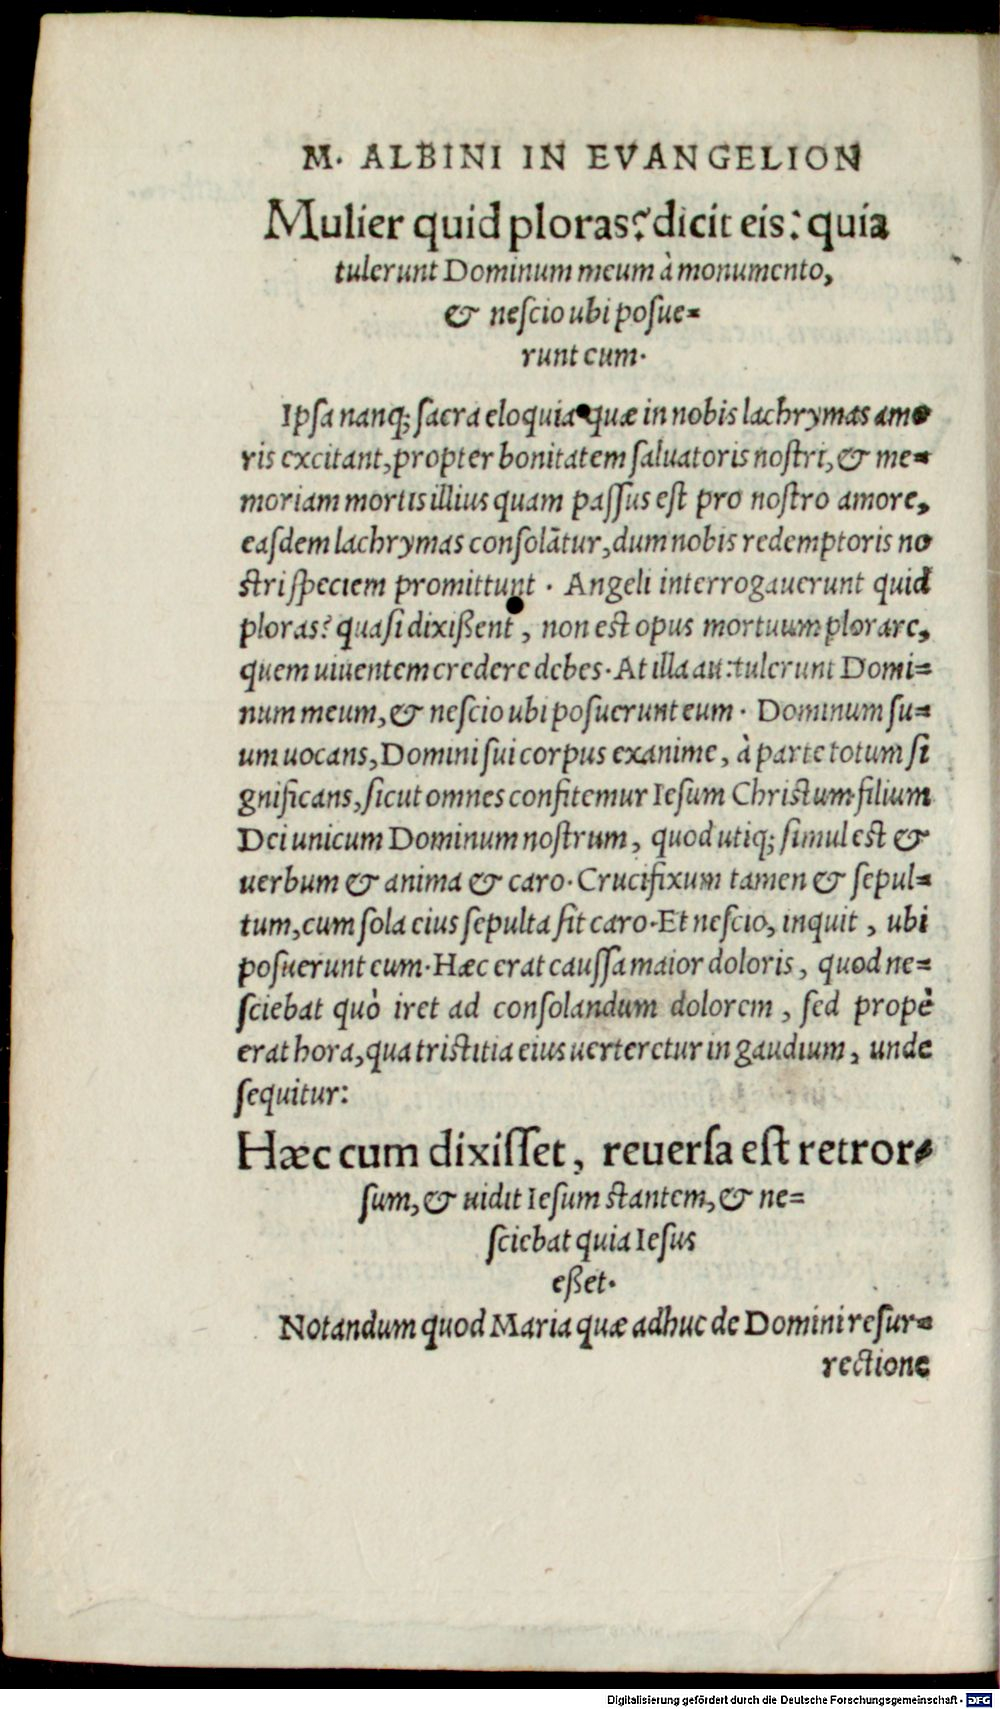 M. ALBINI IN EVANGELION
Mulier quid ploras? dicit eis: quia
tulerunt Dominum meum à monumento,
& neſcio ubi poſue=
runt eum.
Ipſa nanq; ſacra eloquia quæ in nobis lachrymas amo
ris excitant, propter bonitatem ſaluatoris noſtri, & me=
moriam mortis illius quam paſſus eſt pro noſtro amore,
eaſdem lachrymas conſolātur, dum nobis redemptoris no
ſtri ſpeciem promittunt. Angeli interrogauerunt quid
ploras? quaſi dixißent, non est opus mortuum plorare,
quem uiuentem credere debes. At illa ait: tulerunt Domi=
num meum, & neſcio ubi poſuerunt eum. Dominum ſu=
um uocans, Domini ſui corpus exanime, à parte totum ſi
gnificans, ſicut omnes confitemur Ieſum Christum filium
Dei unicum Dominum nostrum, quod utiq; ſimul est &
uerbum & anima & caro. Crucifixum tamen & ſepul=
tum, cum ſola eius ſepulta ſit caro. Et neſcio, inquit, ubi
poſuerunt eum. Hæc erat cauſſa maior doloris, quod ne=
ſciebat quò iret ad conſolandum dolorem, ſed propè
erat hora, qua tristitia eius uerteretur in gaudium, unde
ſequitur:
Hæc cum dixiſſet, reuerſa eſt retror=
ſum, & uidit Ieſum stantem, & ne=
ſciebat quia Ieſus
eßet.
Notandum quod Maria quæ adhuc de Domini reſur=
rectione
Digitalisierung gefördert durch die Deutsche Forschungsgemeinschaft - DFG